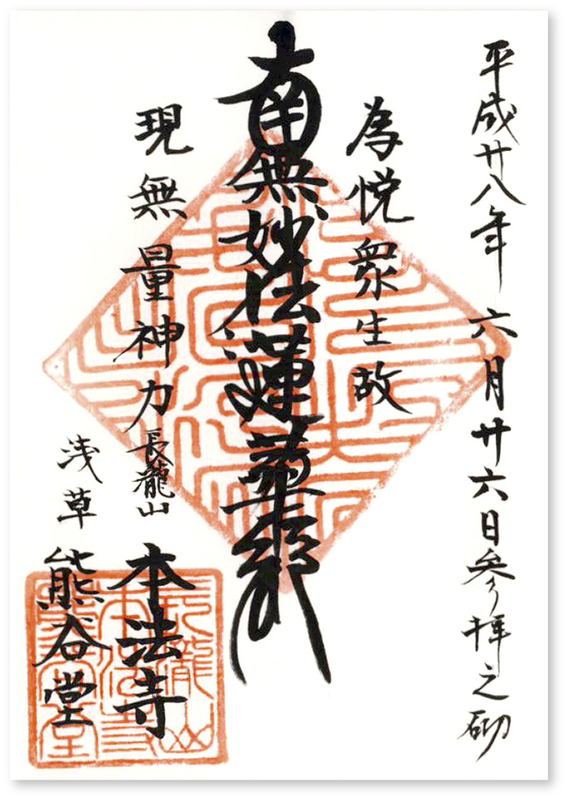 平成廿八年 六月廿六日参拝之砌
為悦衆生故
南無妙法蓮華経
現無量神力
長瀧山
本法寺
浅草
熊谷堂